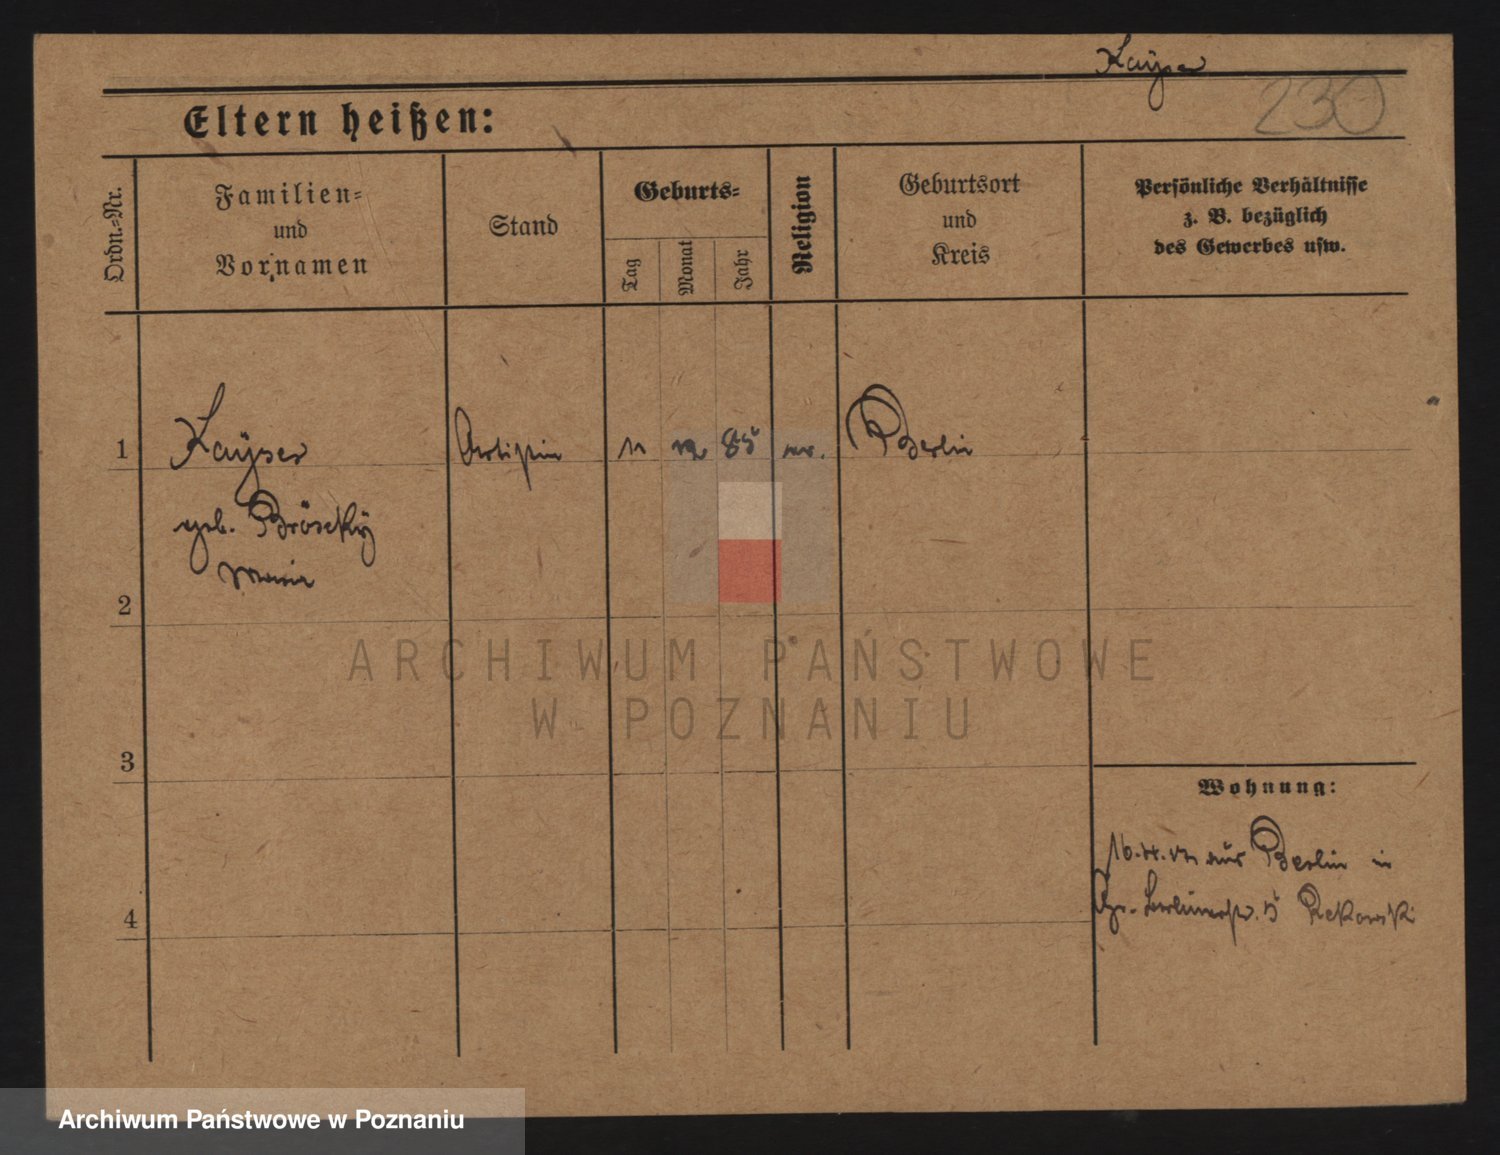 Kayser
230
Eltern heißen:
Ordn.=Nr.
Familien=
und
Vornamen
Stand
Geburts=
Tag
Monat
Jahr
Religion
Geburtsort
und
Kreis
Persönliche Verhältnisse
z. B. bezüglich
des Gewerbes usw.
1 Kayser Artistin 11 12 85 Berlin
geb. Brösecky
Maria
2
3
4
ARCHIWUM PAŃSTWOWE
W POZNANIU
Wohnung:
aus Berlin in
Berlinerstr. 5 Rekowski
Archiwum Państwowe w Poznaniu